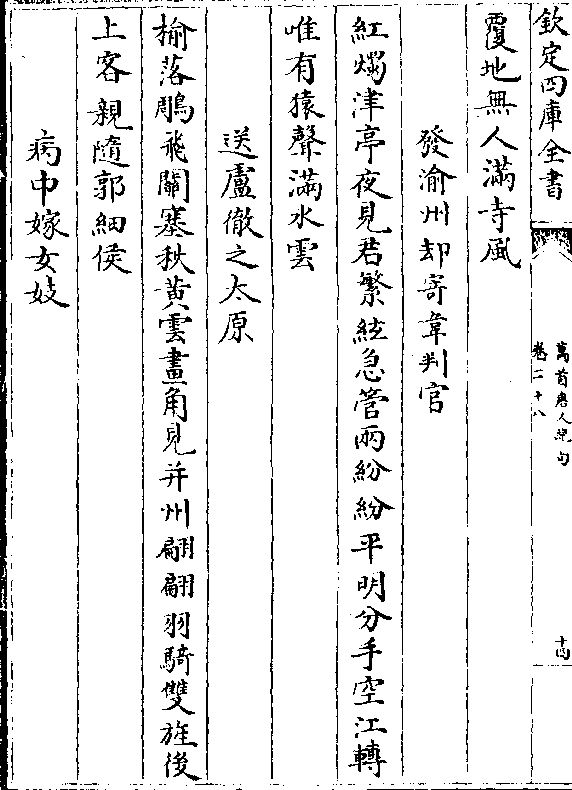 欽定四庫全書
萬首唐人絶句
卷二十八
十四
覆地無人滿寺風
發渝州却寄韋判官
紅燭津亭夜見君繁絃急管兩紛紛平明分手空江轉
唯有猿聲滿水雲
送盧徹之太原
榆落鵰飛關塞秋黄雲畫角見并州翩翩羽騎雙旌後
上客親隨郭細侯
病中嫁女妓